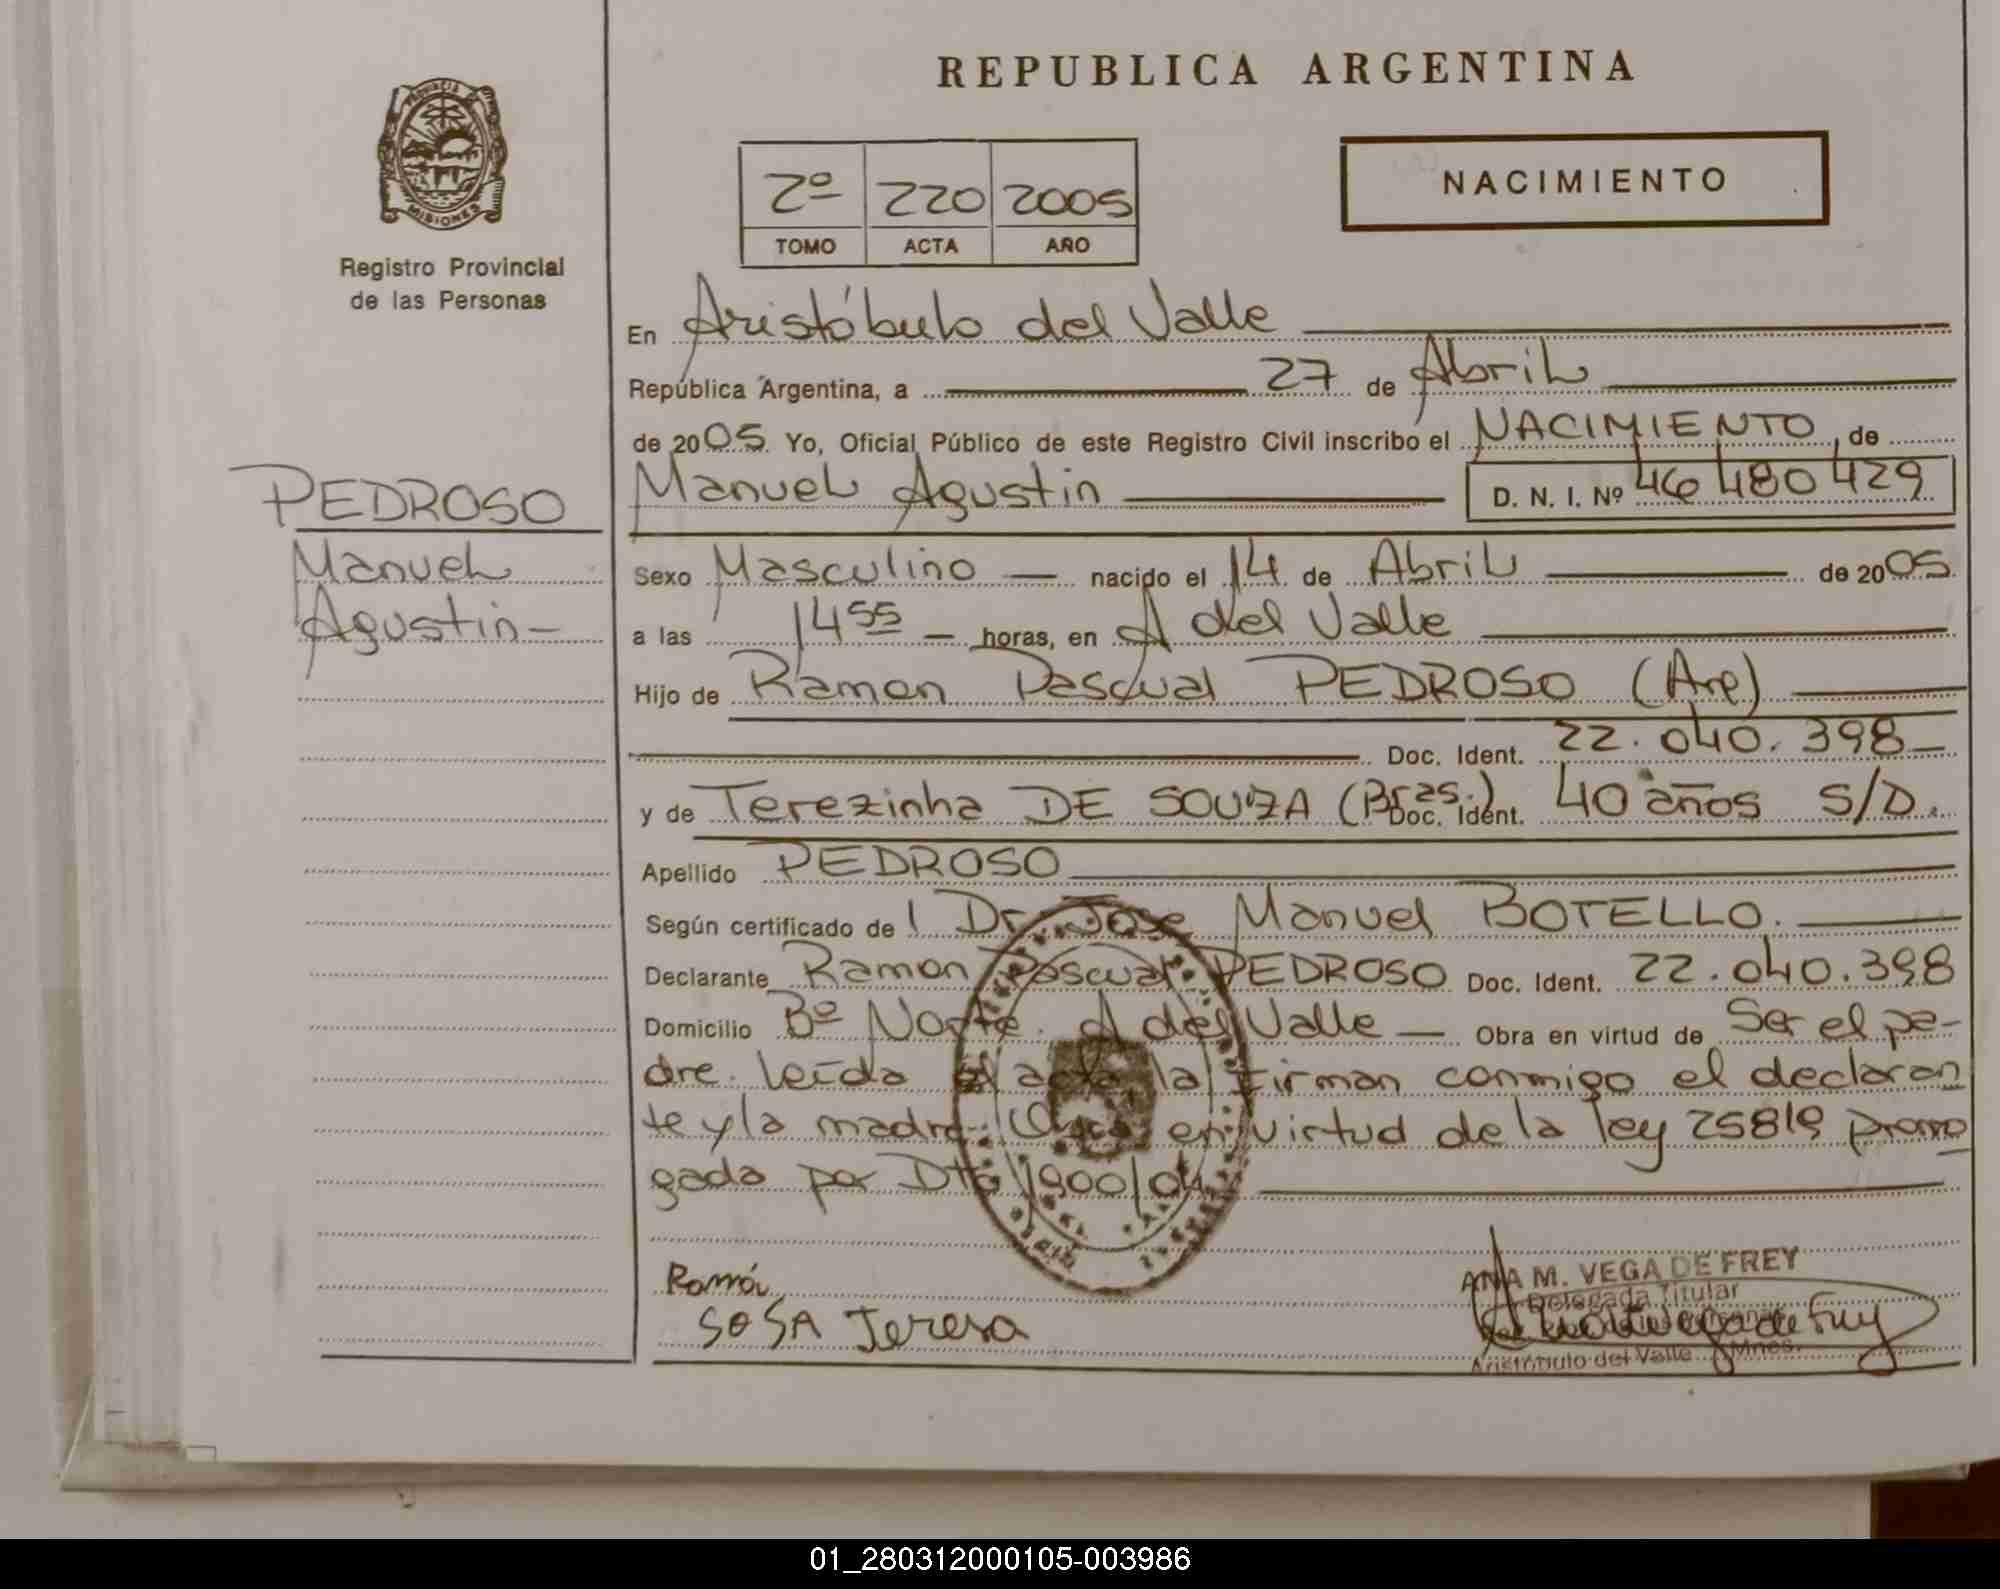 REPUBLICA ARGENTINA
PROVINCIA DE
MISIONES
Registro Provincial
de las Personas
2º 220 2005
TOMO ACTA AÑO
NACIMIENTO
En Aristóbulo del Valle
República Argentina, a 27 de Abril
de 2005. Yo, Oficial Público de este Registro Civil inscribo el NACIMIENTO, de
Manuel Agustin D. N. I. Nº 46 480 429
PEDROSO
Manuel
Agustin-
Sexo Masculino — nacido el 14 de Abril de 2005.
a las 14 55 — horas, en A del Valle
Hijo de Ramon Pascual PEDROSO (Arg)
Doc. Ident. 22.040.398-
y de Terezinha DE SOUZA (Bras.) Doc. Ident. 40 años S/D.
Apellido PEDROSO
Según certificado de l Dr. Jose Manuel BOTELLO.
Declarante Ramon Pascual PEDROSO Doc. Ident. 22.040.398
Domicilio Bº Norte. A del Valle — Obra en virtud de Ser el pa-
dre. leída el acta la firman conmigo el declaran
te y la madre. en virtud de la ley 25819 prorro
gada por Dto 1900/04
Ramón
SOSA Teresa
ANA M. VEGA DE FREY
Delegada Titular
Aristóbulo del Valle Mnes.
01_280312000105-003986